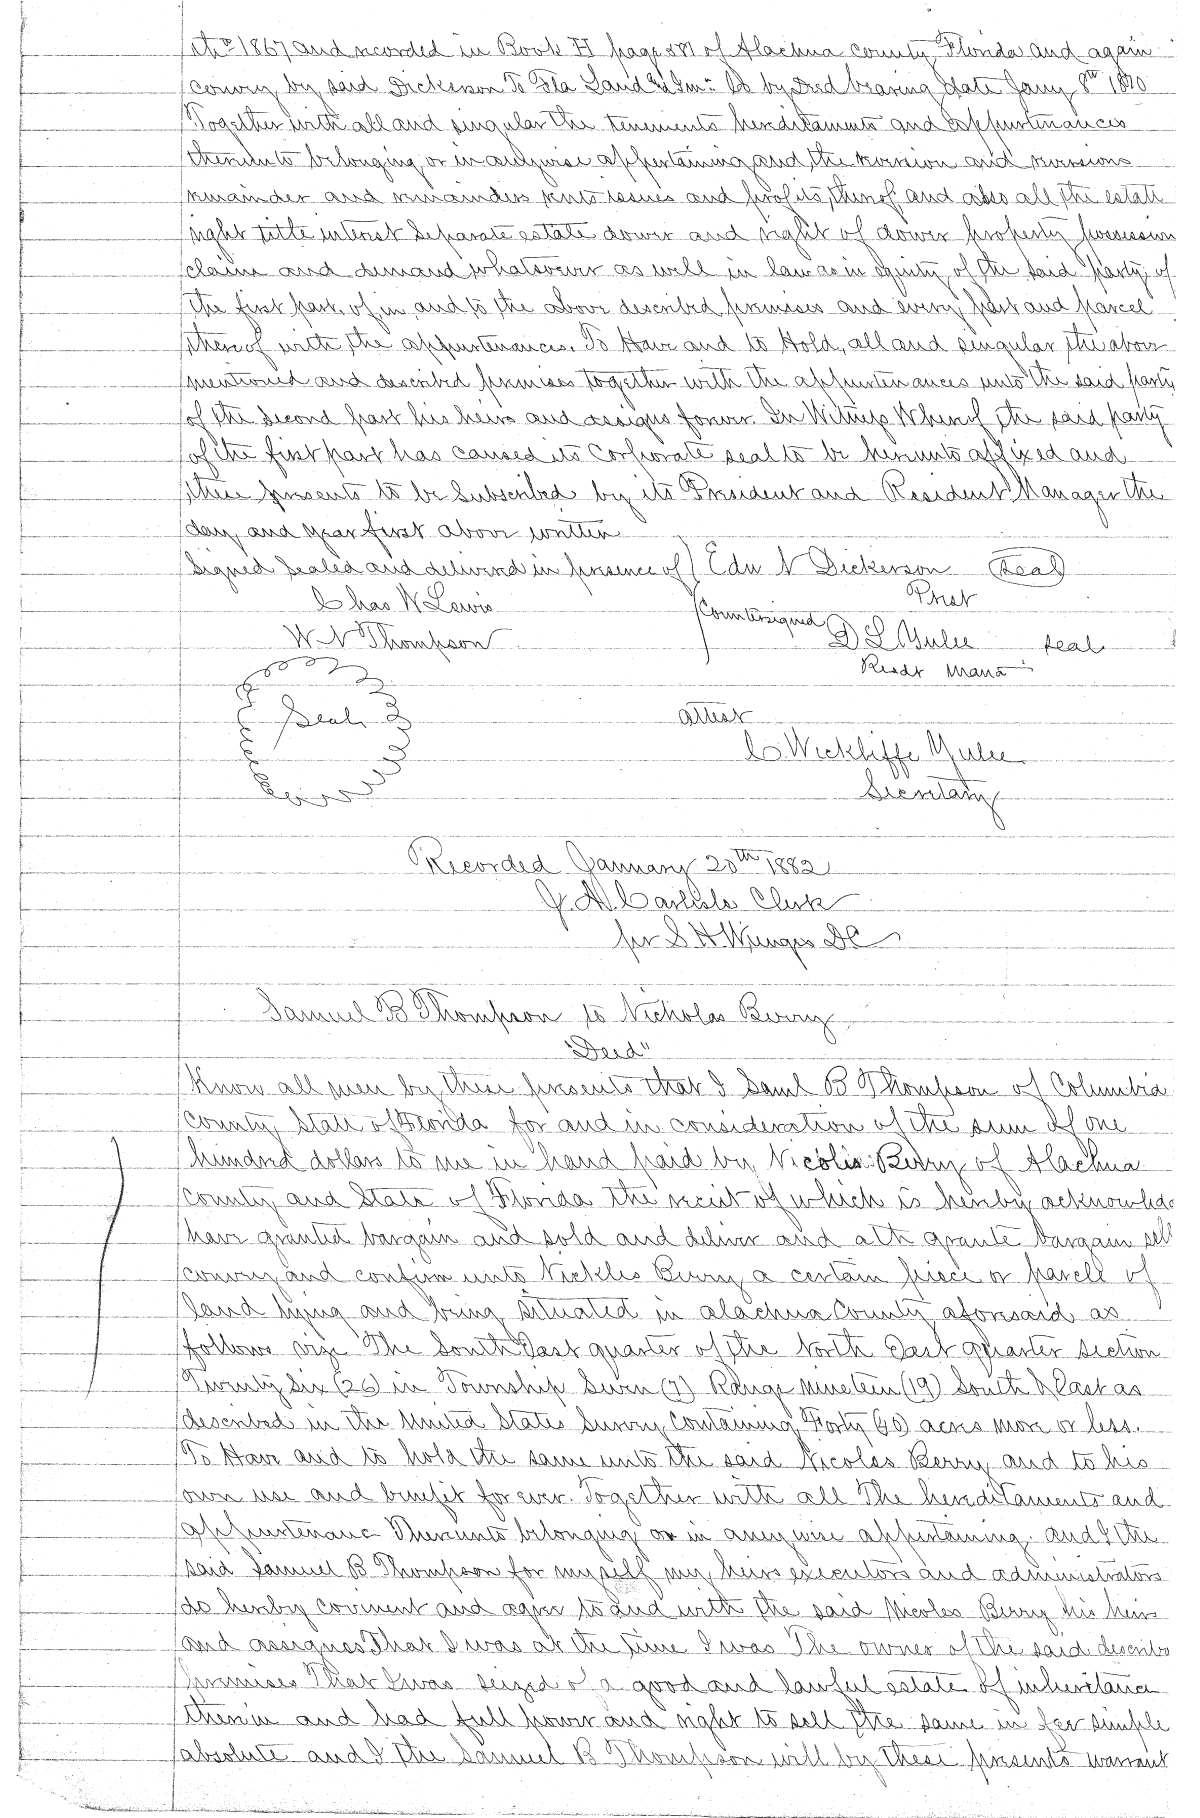 1867 and recorded in Book H page 281 of Alachua county, Florida and again
convey by said Dickerson To Fla Land & Im: Co by Deed bearing date Jany 8th
Together with all and singular the tenements hereditaments and appurtenances
thereunto belonging or in anywise appertaining and the reversion and reversions
remainder and remainders rents issues and profits, thereof, and also all the estate
right title interest Separate estate dower and right of dower property possession
claim and demand whatsoever as well in law as in equity, of the said party, of
the first part, of, in and to the above described premises and every, part and parcel
thereof with the appurtenances. To Have and to Hold, all and singular the above
mentioned and described premises together with the appurtenances unto the said party
of the Second part his heirs and assigns forever. In Witness Whereof, the said party
of the first part has caused its Corporate seal to be hereunto affixed and
these presents to be Subscribed by its President and Resident Manager the
day, and year first above written
Signed Sealed and delivered in presence of Edw N Dickerson Seal
Chas W Lewis Prest
W N Thompson Countersigned D L Yulee seal
Resdt Mana
Seal attest
C Wickliffe Yulee
Secretary
Recorded January 20th 1882
J. A. Carlisle Clerk
per S. H. Wienges DC
Samuel B Thompson to Nicholas Berry
"Deed"
Know all men by these presents that I Saml B Thompson of Columbia
County State of Florida for and in consideration of the sum of one
hundred dollars to me in hand paid by Nicolis Berry of Alachua
County and State of Florida the reciet of which is hereby acknowledg
have granted bargain and sold and deliver and ath grante bargain sell
convey and confirm unto Nickles Berry a certain piece or parcele of
land lying and being situated in Alachua County aforesaid as
follows viz The South East quarter of the North East quarter section
Twenty Six (26) in Township Seven (7) Range nineteen (19) South & East as
described in the United States Survey Containing Forty (40) acres more or less.
To Have and to hold the same unto the said Nicolas Berry and to his
own use and benifit forever. Together with all The hereditaments and
appurtenanc Thereunto belonging or in anywise appertaining. and I the
said Samuel B Thompson for myself my, heirs executors and administrators
do hereby covinent and agree to and with the said Nicoles Berry his heirs
and assignes That I was at the time I was The owner of the said describe
premises That I was seized of a good and lawful estate of inheritance
therein and had full power and right to sell the same in fee simple
absolute and I the Samuel B Thompson will by these presents warrant